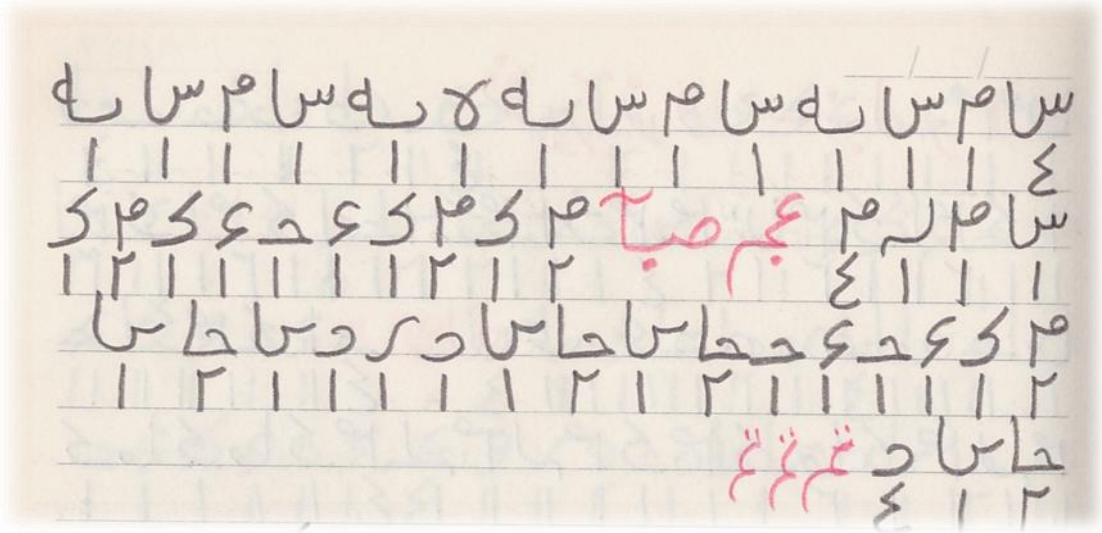 سا م سا ىه سا م سا ىه لا ىه سا م سا ىه
٤ ١ ١ ١ ١ ١ ١ ١ ١ ١ ١ ١ ١ ١
سا م له م عجم صبا م ک م ک ء ح ء ک م ک
١ ١ ١ ٤ ٢ ١ ٢ ١ ١ ١ ١ ١ ٢ ١
م ک ء ح ء ح حا سا حا سا د ر د سا حا سا
٢ ١ ١ ١ ١ ١ ٢ ١ ٢ ١ ١ ١ ١ ١ ٢ ١
حا سا د تم تم تم
٢ ١ ٤